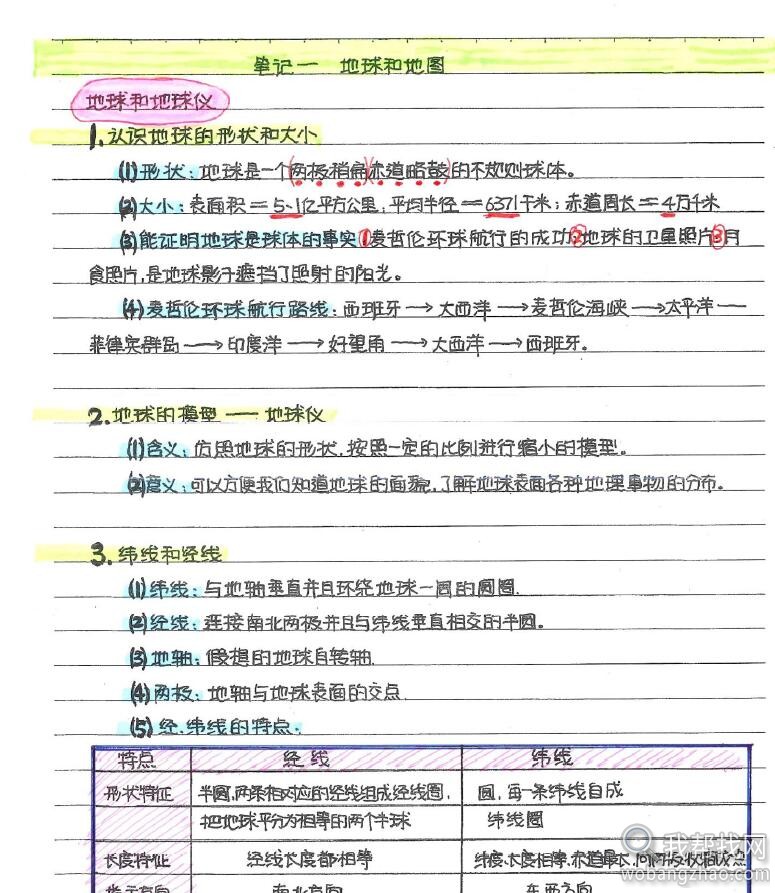 笔记一 地球和地图
地球和地球仪
1.认识地球的形状和大小
(1)形状:地球是一个(两极稍扁)(赤道略鼓)的不规则球体。
(2)大小:表面积=5.1亿平方公里;平均半径=6371千米;赤道周长=4万千米
(3)能证明地球是球体的事实①麦哲伦环球航行的成功②地球的卫星照片③月
食照片,是地球影子遮挡了照射的阳光。
(4)麦哲伦环球航行路线:西班牙→大西洋→麦哲伦海峡→太平洋—
菲律宾群岛→印度洋→好望角→大西洋→西班牙。
2.地球的模型——地球仪
(1)含义:仿照地球的形状,按照一定的比例进行缩小的模型。
(2)意义:可以方便我们知道地球的面貌,了解地球表面各种地理事物的分布。
3.纬线和经线
(1)纬线:与地轴垂直并且环绕地球一周的圆圈.
(2)经线:连接南北两极并且与纬线垂直相交的半圆。
(3)地轴:假想的地球自转轴.
(4)两极:地轴与地球表面的交点.
(5)经.纬线的特点.
特点 经线 纬线
形状特征 半圆,两条相对应的经线组成经线圈, 圆,每一条纬线自成
把地球平分为相等的两个半球 纬线圈
长度特征 经线长度都相等 纬度.长度相等.赤道最长,向两极收缩成点
指示方向 南北方向 东西方向
我帮找网
wobangzhao.com